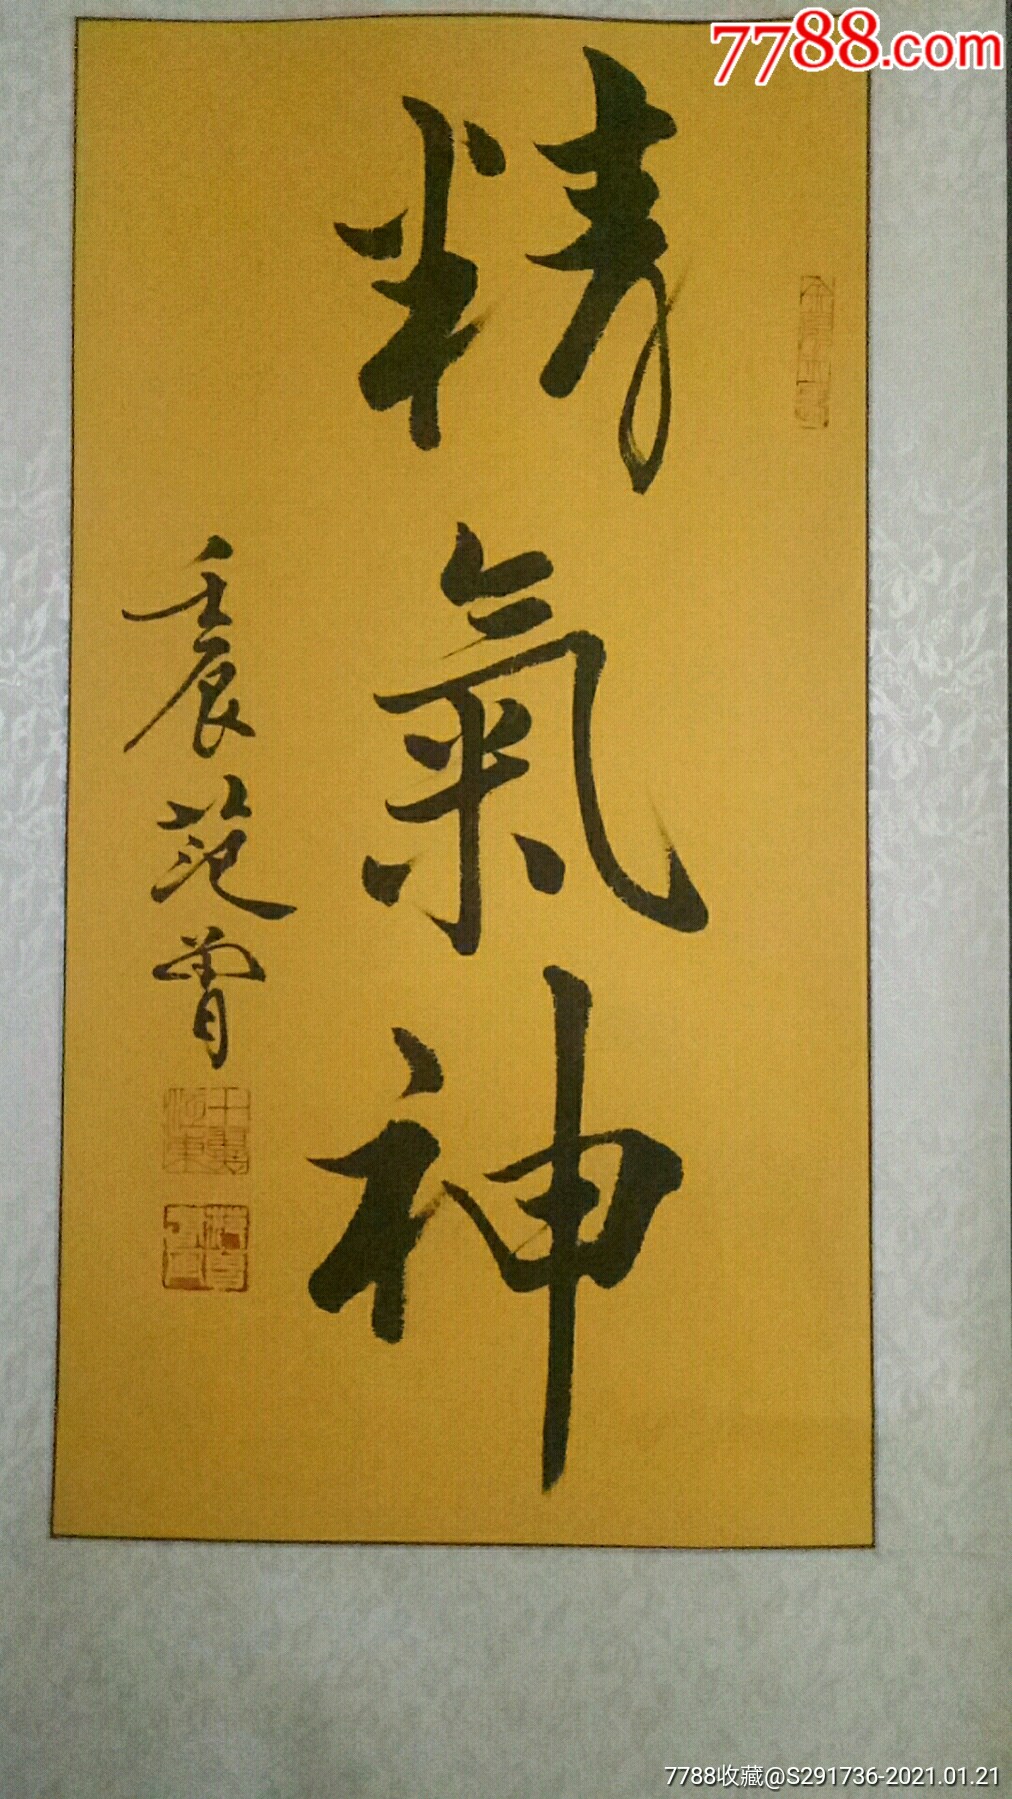 7788.com
精氣神
壬辰范曾
7788收藏@S291736-2021.01.21